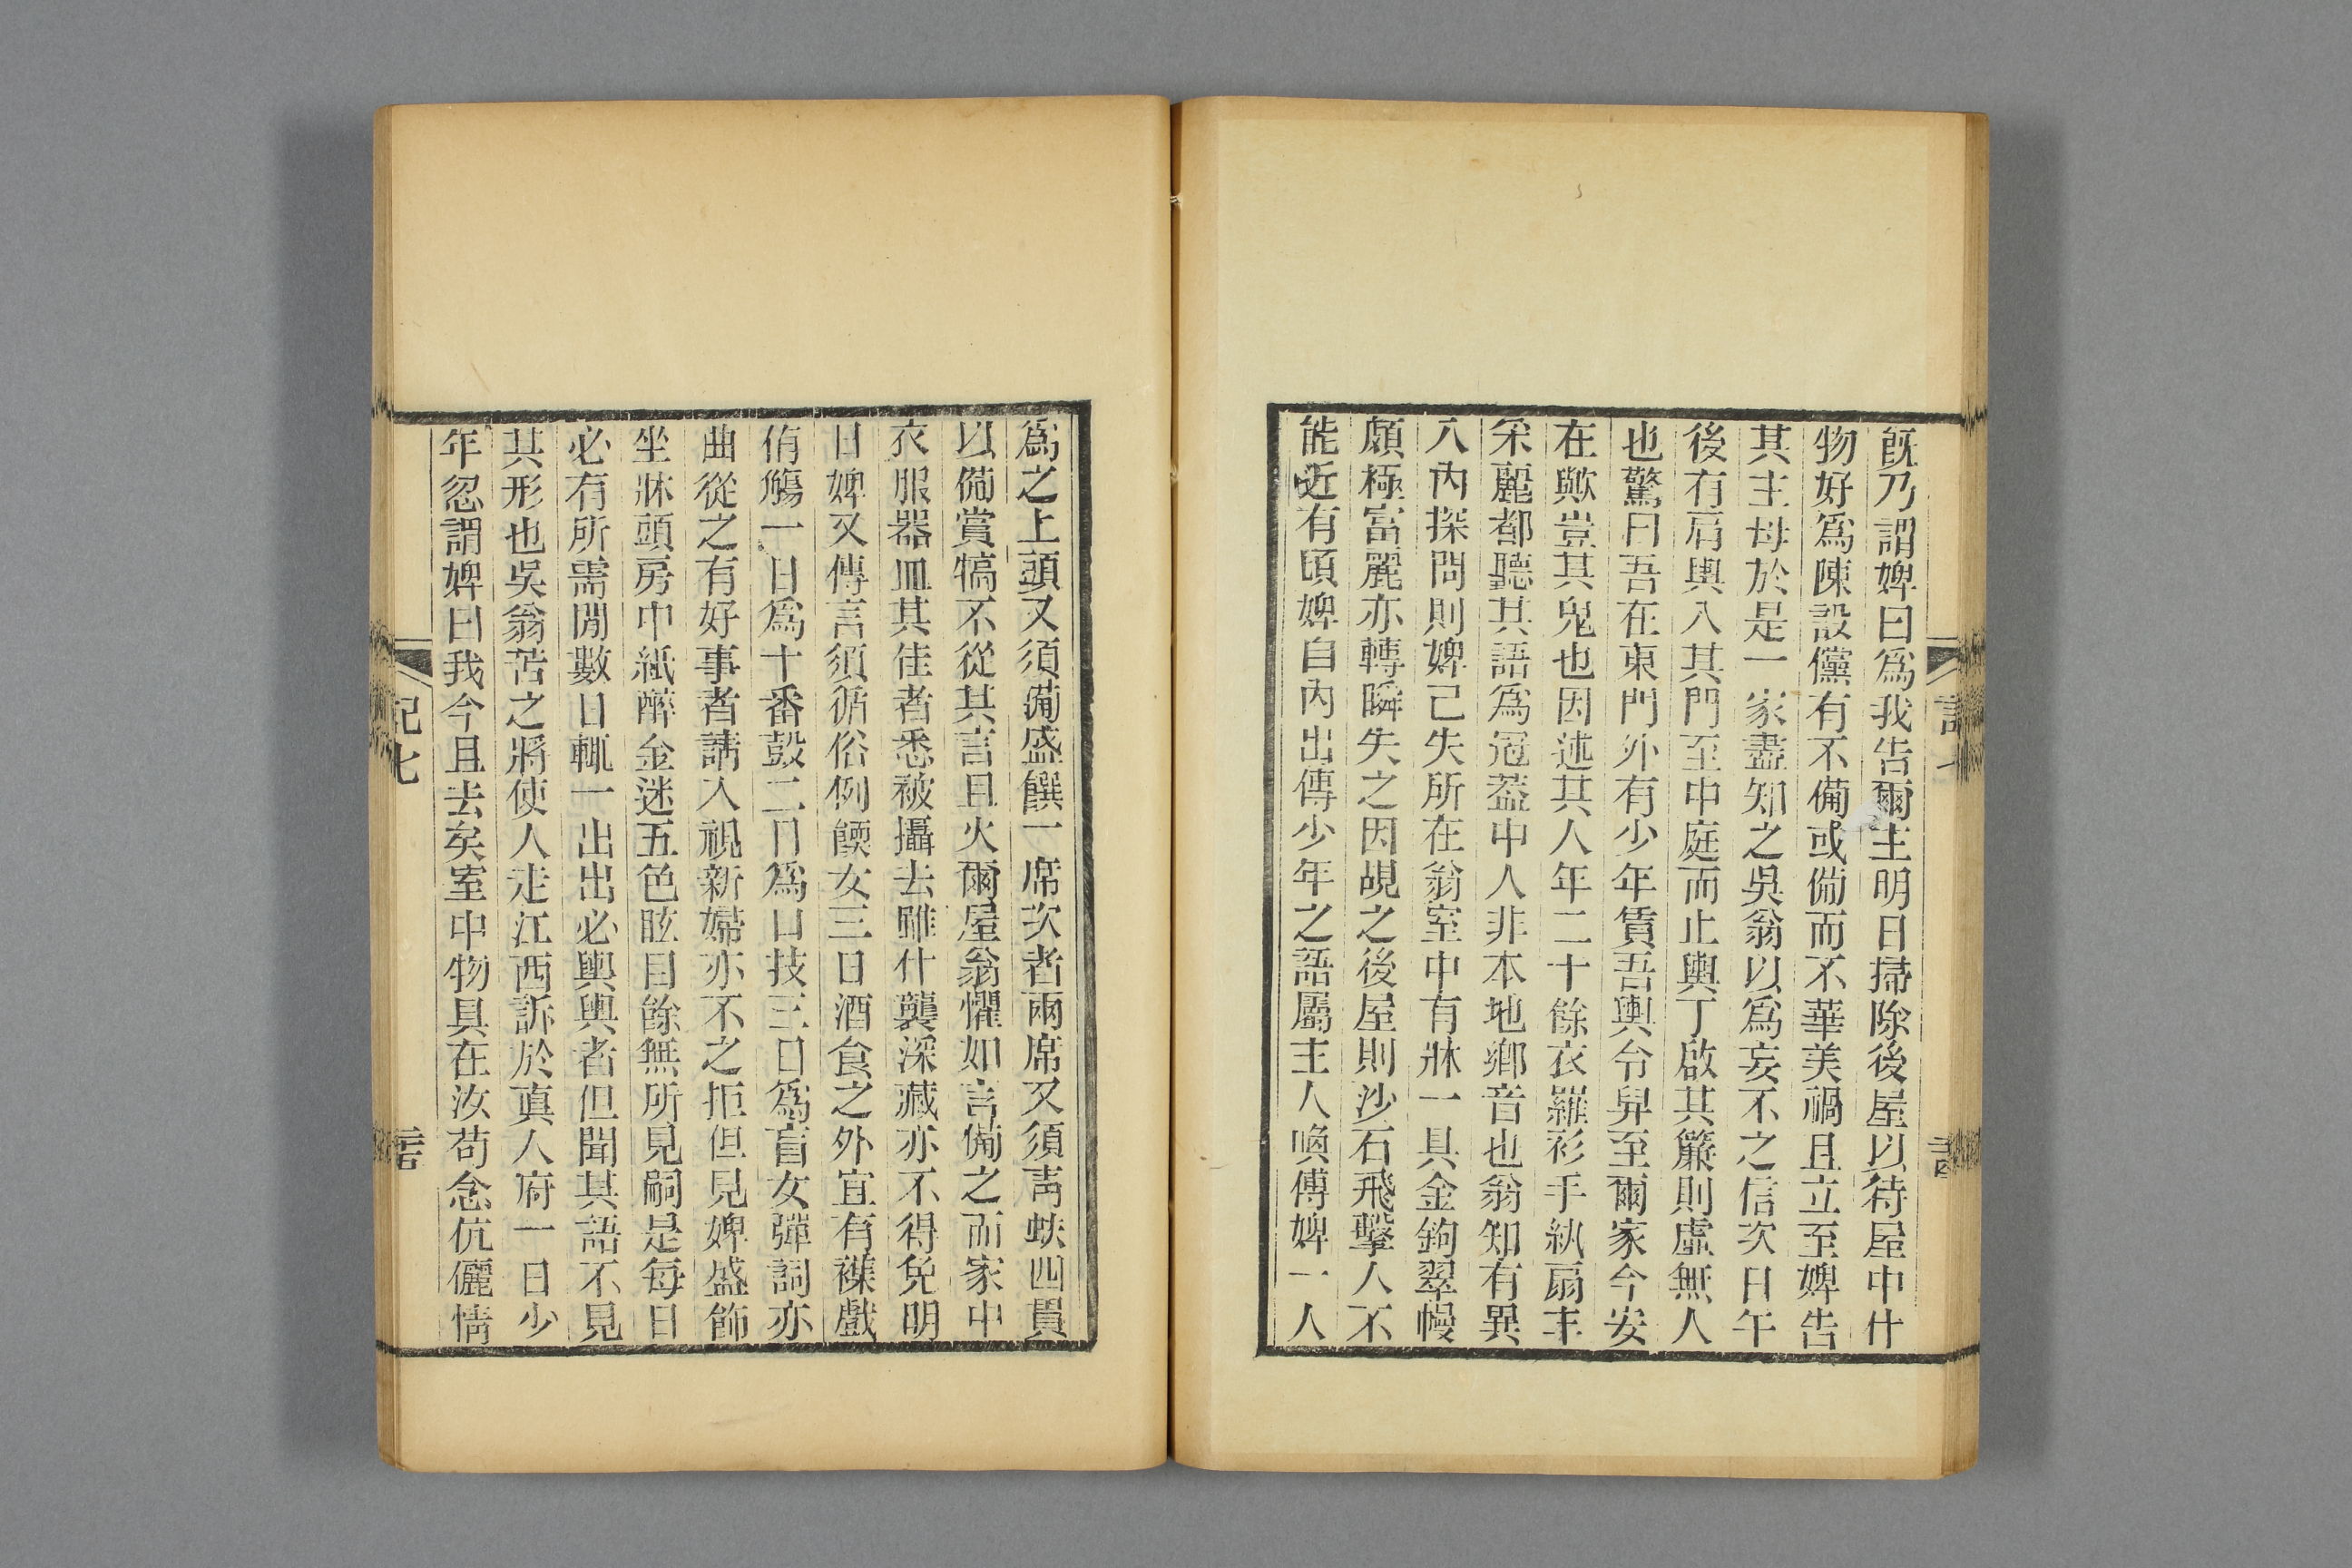 旣乃謂婢曰爲我告爾主明日掃除後屋以待屋中什
物好爲陳設儻有不備或備而不華美禍且立至婢告
其主母於是一家盡知之吳翁以爲妄不之信次日午
後有肩輿入其門至中庭而止輿丁啟其簾則虛無人
也驚曰吾在東門外有少年賃吾輿令舁至爾家今安
在歟豈其鬼也因述其人年二十餘衣羅衫手紈扇丰
采麗都聽其語爲冠蓋中人非本地鄉音也翁知有異
入內探問則婢已失所在翁室中有牀一具金鉤翠幔
頗極富麗亦轉瞬失之因覘之後屋則沙石飛擊人不
能近有頃婢自內出傳少年之語屬主人喚傅婢一人
爲之上頭又須備盛饌一席次者兩席又須靑蚨四貫
以備賞犒不從其言且火爾屋翁懼如言備之而家中
衣服器皿其佳者悉被攝去雖什襲深藏亦不得免明
日婢又傳言須循俗例餪女三日酒食之外宜有襍戲
侑觴一日爲十番鼓二日爲口技三日爲盲女彈詞亦
曲從之有好事者請入視新婦亦不之拒但見婢盛飾
坐牀頭房中紙醉金迷五色眩目餘無所見嗣是每日
必有所需閒數日輒一出出必輿輿者但聞其語不見
其形也吳翁苦之將使人走江西訴於眞人府一日少
年忽謂婢曰我今且去矣室中物具在汝苟念伉儷情
記七